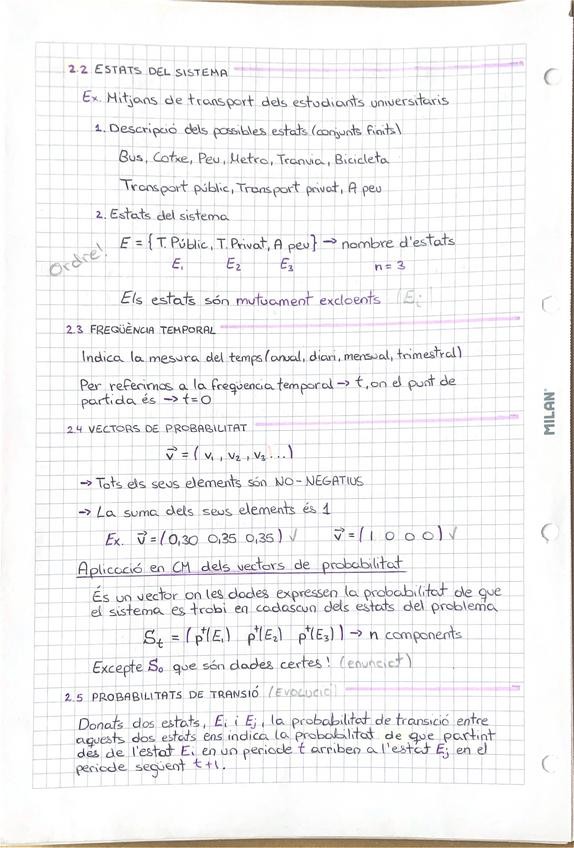 2.2 ESTATS DEL SISTEMA
Ex. Mitjans de transport dels estudiants universitaris
1. Descripció dels possibles estats (conjunts finits)
Bus, Cotxe, Peu, Metro, Tranvia, Bicicleta
Transport públic, Transport privat, A peu
2. Estats del sistema
Ordre!
E = { T. Públic, T. Privat, A peu } → nombre d'estats
E₁ E₂ E₃ n = 3
Els estats són mutuament excloents (Eᵢ)
2.3 FREQÜÈNCIA TEMPORAL
Indica la mesura del temps (anual, diari, mensual, trimestral)
Per referirnos a la freqüencia temporal → t, on el punt de
partida és → t=0
2.4 VECTORS DE PROBABILITAT
v⃗ = ( v₁ , v₂ , v₃ ... )
→ Tots els seus elements són NO-NEGATIUS
→ La suma dels seus elements és 1
Ex. v⃗ = (0,30 0,35 0,35) √ v⃗ = (1 0 0 0) √
Aplicació en CM dels vectors de probabilitat
És un vector on les dades expressen la probabilitat de que
el sistema es trobi en cadascun dels estats del problema
Sₜ = ( pᵗ(E₁) pᵗ(E₂) pᵗ(E₃) ) → n components
Excepte S₀ que són dades certes! (enunciat)
2.5 PROBABILITATS DE TRANSIÓ (Evolució)
Donats dos estats, Eᵢ i Eⱼ, la probabilitat de transició entre
aquests dos estats ens indica la probabilitat de que partint
des de l'estat Eᵢ en un periode t arriben a l'estat Eⱼ en el
periode següent t+1.
MILAN